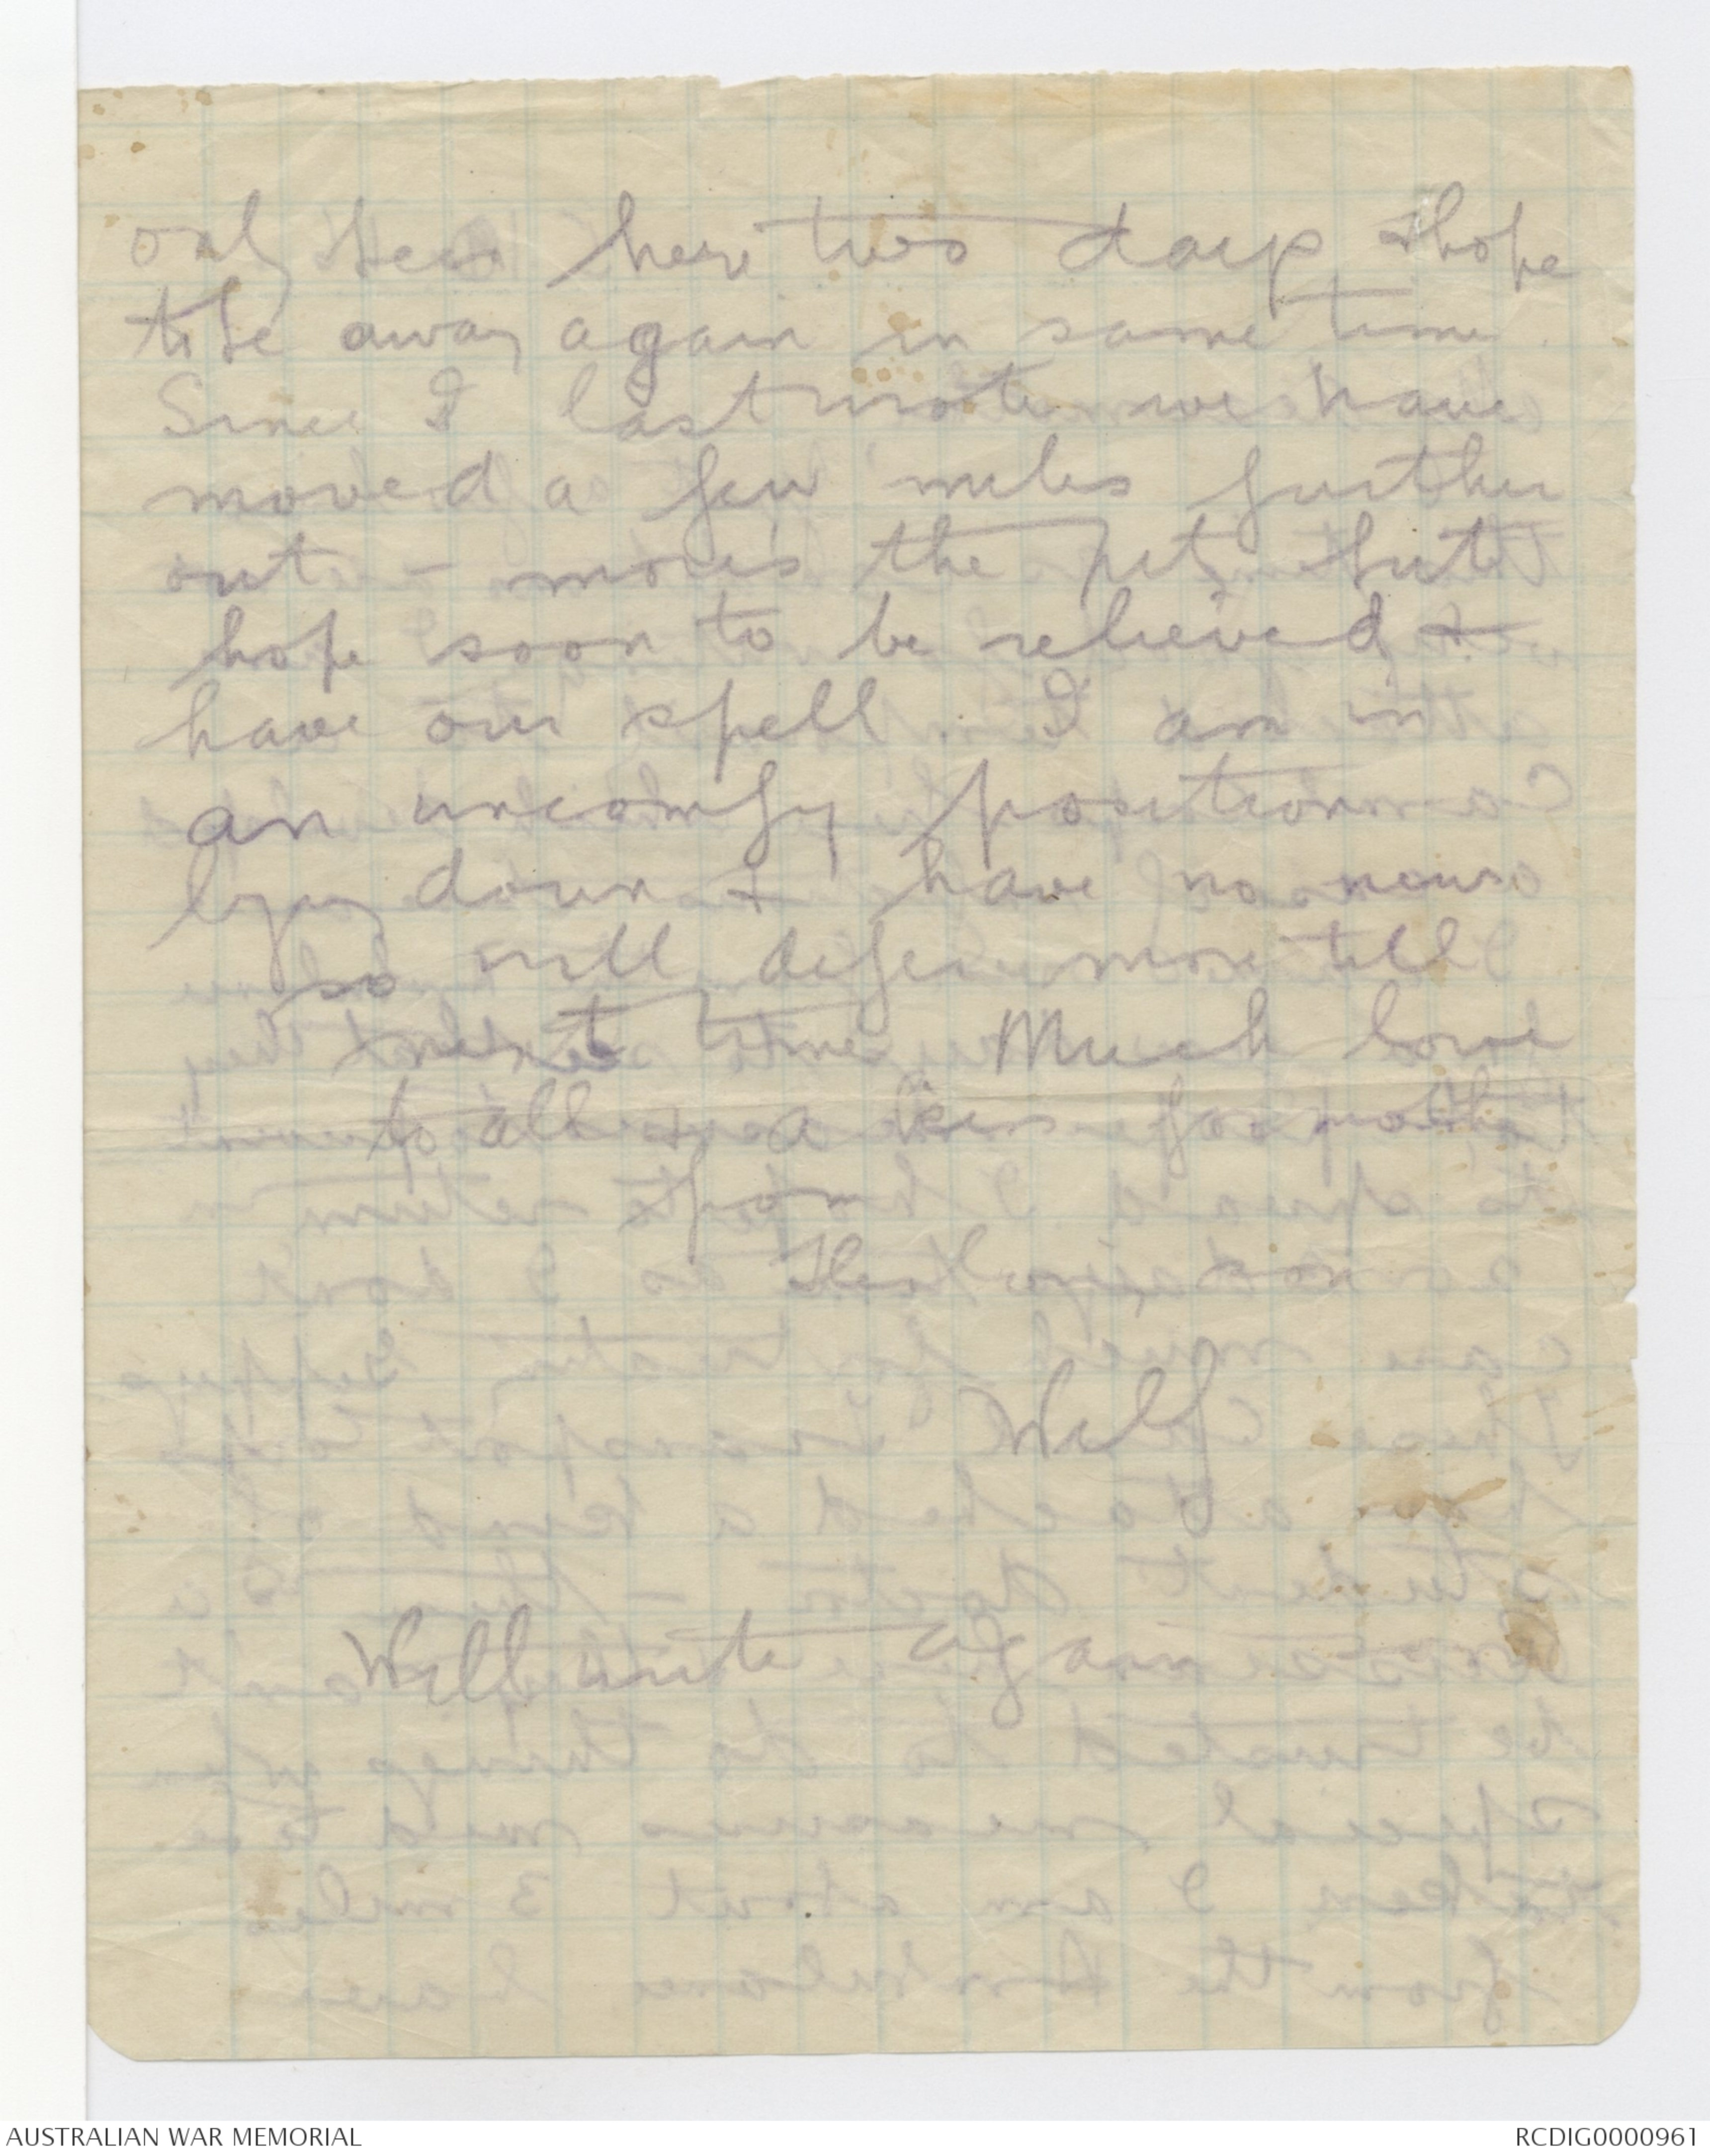 only been here two days & hope
to be away again in same time.
Since I last wrote we have
moved a few miles further
out - mores the pity but
hope soon to be relieved &
have our spell. I am in
an uncomfy position
lying down & have no news
so will defer more till
next time Much love
to all & a kiss for mother
from
Their loving son
Wilf
Will write again
AUSTRALIAN WAR MEMORIAL
RCDIG0000961